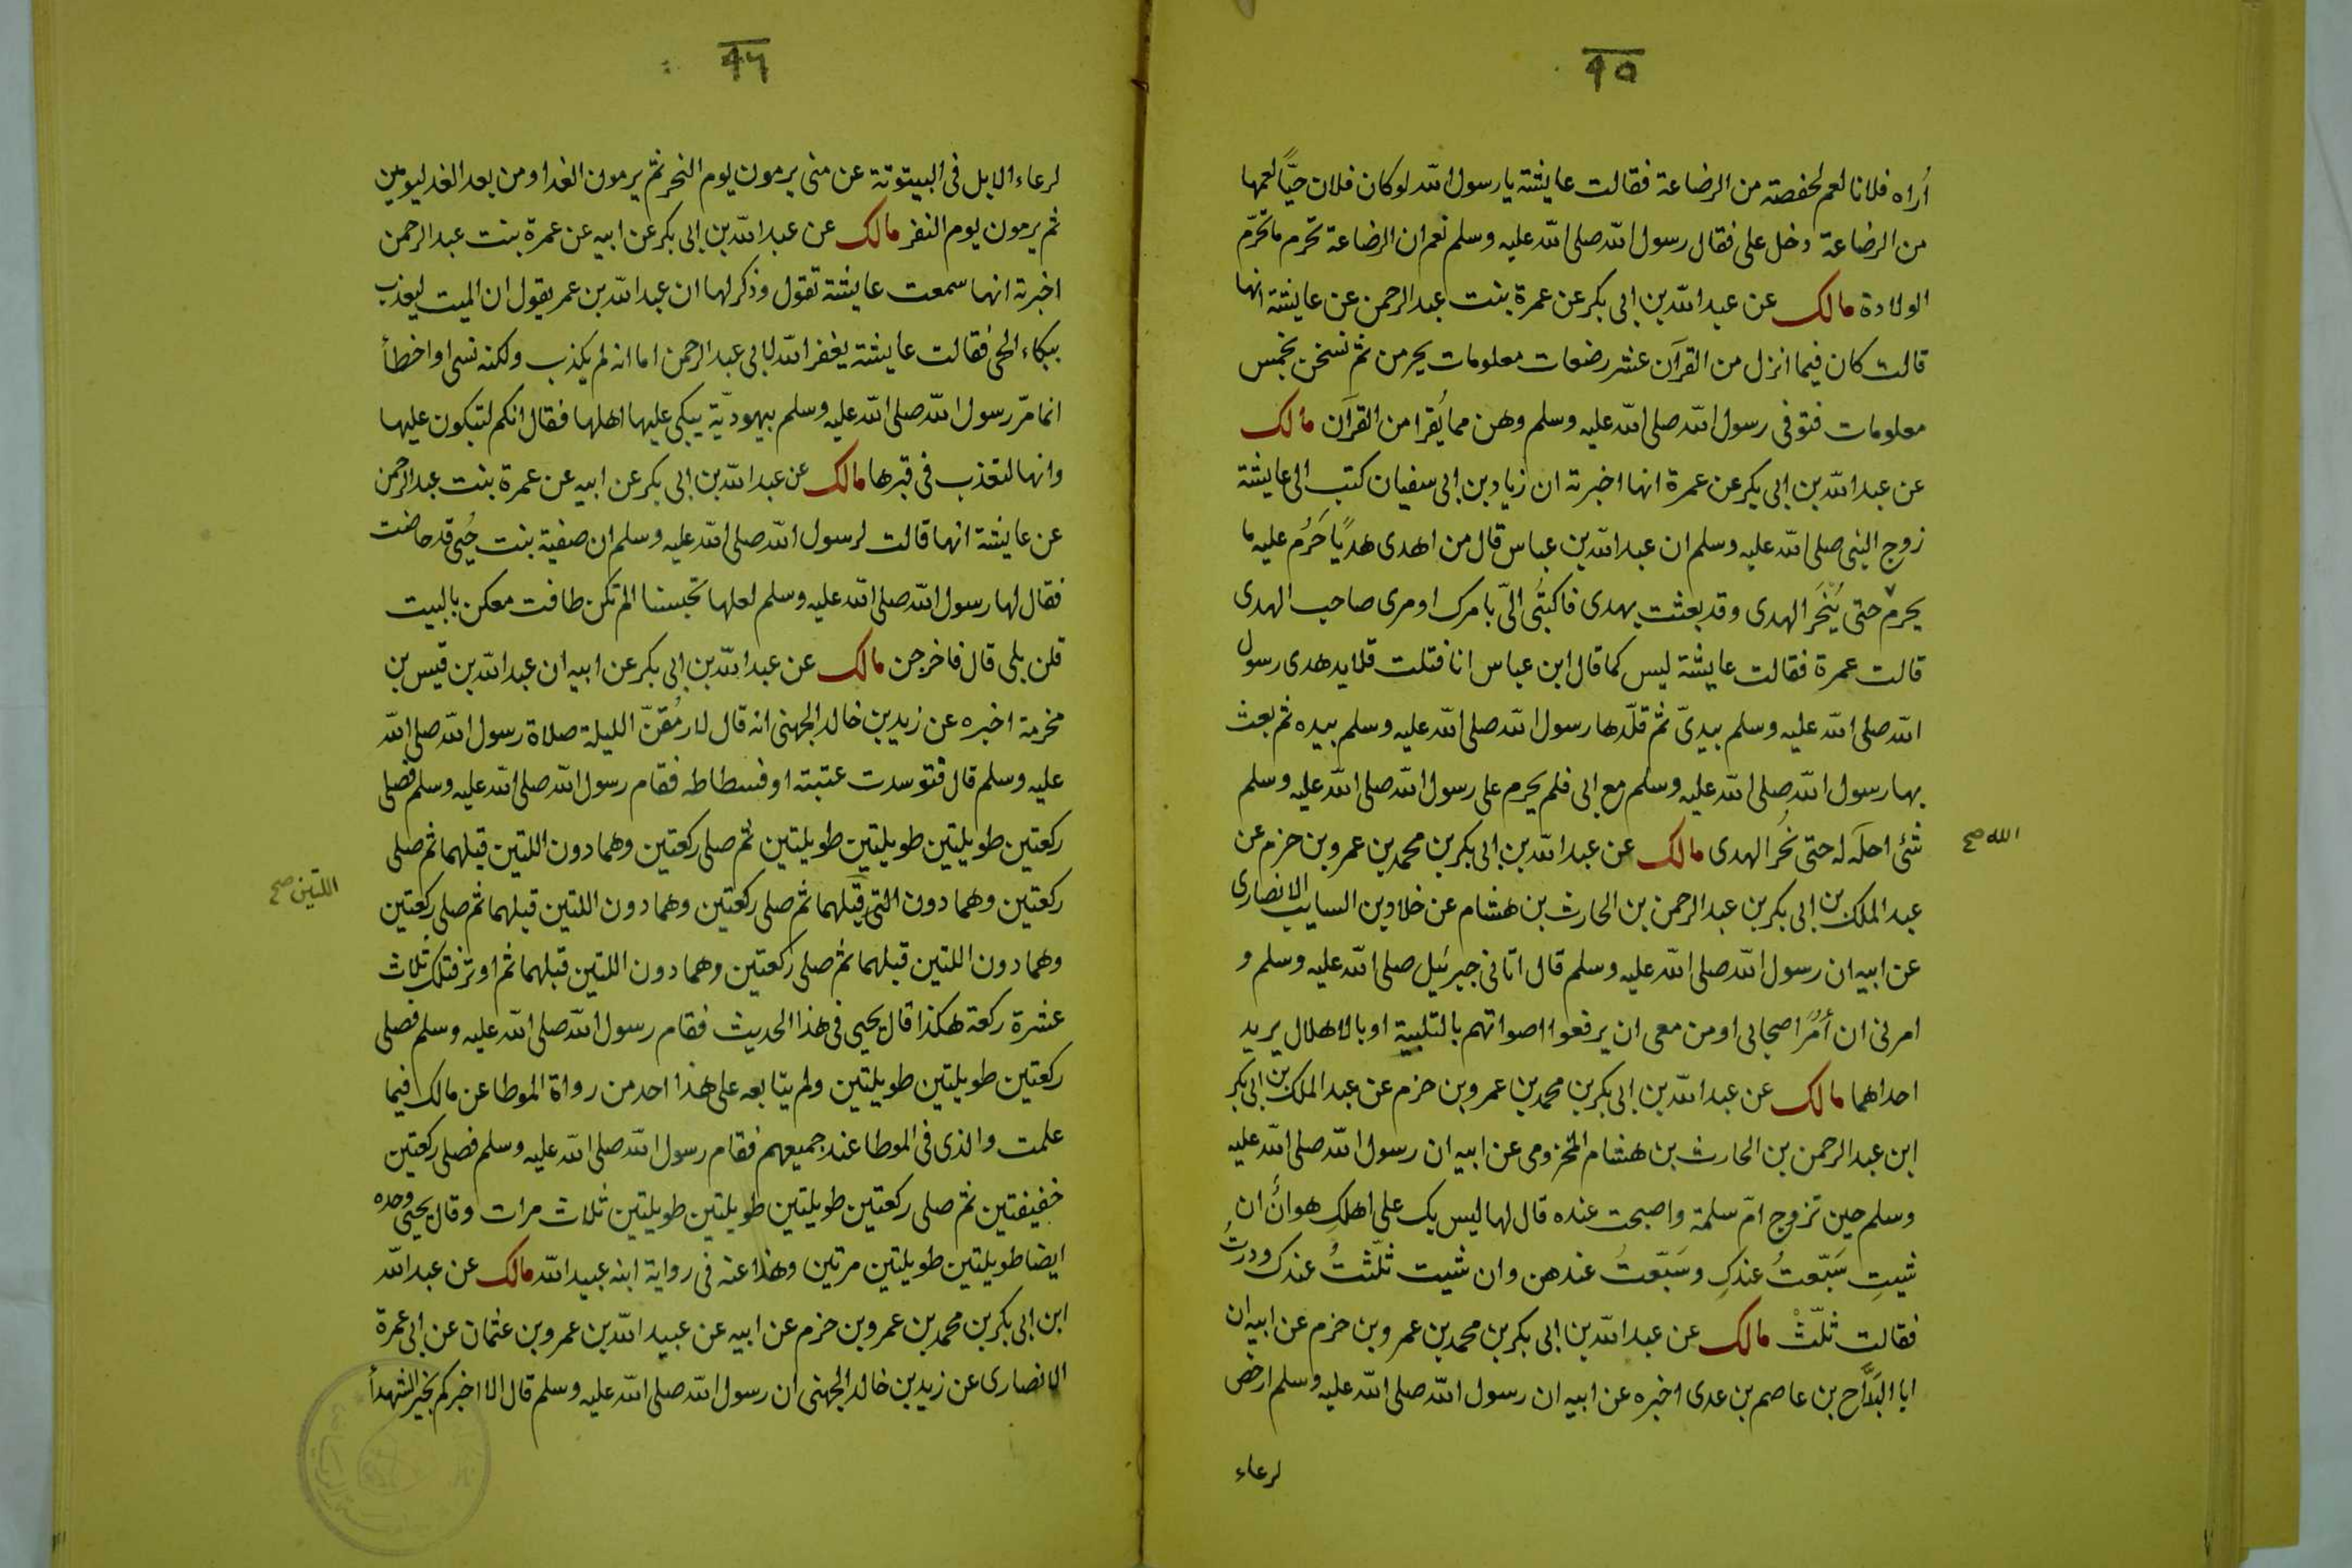 ٩٥
أراه فلانا لعم لحفصة من الرضاعة فقالت عايشة يا رسول الله لو كان فلان حيًّا لعمها
من الرضاعة دخل على فقال رسول الله صلى الله عليه وسلم نعم ان الرضاعة تحرم ما تحرّم
الولادة مالك عن عبد الله بن ابى بكر عن عمرة بنت عبد الرحمن عن عايشة انها
قالت كان فيما انزل من القرآن عشر رضعات معلومات يحرمن ثم نسخن بخمس
معلومات فتوفى رسول الله صلى الله عليه وسلم وهن مما يُقرا من القرآن مالك
عن عبد الله بن ابى بكر عن عمرة انها اخبرته ان زياد بن ابى سفيان كتب الى عايشة
زوج النبى صلى الله عليه وسلم ان عبد الله بن عباس قال من اهدى هديًا حَرُم عليه ما
يحرم حتى يُنْحَر الهدى وقد بعثت بهدى فاكتُبى الىّ بامرك او مرى صاحب الهدى
قالت عمرة فقالت عايشة ليس كما قال ابن عباس انا فتلت قلايد هدى رسول
الله صلى الله عليه وسلم بيدىّ ثم قلّدها رسول الله صلى الله عليه وسلم بيده ثم بعث
بها رسول الله صلى الله عليه وسلم مع ابى فلم يحرم على رسول الله صلى الله عليه وسلم
شئ احله له حتى نُحُر الهدى مالك عن عبد الله بن ابى بكر بن محمد بن عمرو بن حزم عن
الله صح
عبد الملك بن ابى بكر بن عبد الرحمن بن الحارث بن هشام عن خلاد بن السايب الانصارى
عن ابيه ان رسول الله صلى الله عليه وسلم قال اتانى جبرئيل صلى الله عليه وسلم و
امرنى ان أمُرَ اصحابى او من معى ان يرفعوا اصواتهم بالتلبية او بالاهلال يريد
احداهما مالك عن عبد الله بن ابى بكر بن محمد بن عمرو بن حزم عن عبد الملك بن ابى بكر
ابن عبد الرحمن بن الحارث بن هشام المخزومى عن ابيه ان رسول الله صلى الله عليه
وسلم حين تزوج امّ سلمة واصبحت عنده قال لها ليس بك على اهلكِ هوانٌ ان
شيتِ سَبّعتُ عندكِ وسَبّعتُ عندهن وان شيت ثلّثتُ عندك ودرتُ
فقالت ثلّثْ مالك عن عبد الله بن ابى بكر بن محمد بن عمرو بن حزم عن ابيه ان
ابا البَدَّاح بن عاصم بن عدى اخبره عن ابيه ان رسول الله صلى الله عليه وسلم ارخص
لرعاء
٩٦
لرعاء الابل فى البيتوتة عن منى يرمون يوم النحر ثم يرمون الغد او من بعد الغد ليومين
ثم يرمون يوم النفر مالك عن عبد الله بن ابى بكر عن ابيه عن عمرة بنت عبد الرحمن
اخبرته انها سمعت عايشة تقول وذكر لها ان عبد الله بن عمر يقول ان الميت ليعذب
ببكاء الحى فقالت عايشة يغفر الله لابى عبد الرحمن اما انه لم يكذب ولكنه نسى او اخطأ
انما مرّ رسول الله صلى الله عليه وسلم بيهوديّة يبكى عليها اهلها فقال انكم لتبكون عليها
وانها لتعذب فى قبرها مالك عن عبد الله بن ابى بكر عن ابيه عن عمرة بنت عبد الرحمن
عن عايشة انها قالت لرسول الله صلى الله عليه وسلم ان صفية بنت حُيى قد حاضت
فقال لها رسول الله صلى الله عليه وسلم لعلها تحبسنا الم تكن طافت معكن بالبيت
قلن بلى قال فاخرجن مالك عن عبد الله بن ابى بكر عن ابيه ان عبد الله بن قيس بن
مخرمة اخبره عن زيد بن خالد الجهنى انه قال لارمُقنّ الليلة صلاة رسول الله صلى الله
عليه وسلم قال فتوسدت عتبته او فسطاطه فقام رسول الله صلى الله عليه وسلم فصلى
ركعتين طويلتين طويلتين طويلتين ثم صلى ركعتين وهما دون اللتين قبلهما ثم صلى
ركعتين وهما دون التى قبلهما ثم صلى ركعتين وهما دون اللتين قبلهما ثم صلى ركعتين
اللتين صح
وهما دون اللتين قبلهما ثم صلى ركعتين وهما دون اللتين قبلهما ثم اوتر فتلك ثلاث
عشرة ركعة هكذا قال يحيى فى هذا الحديث فقام رسول الله صلى الله عليه وسلم فصلى
ركعتين طويلتين طويلتين ولم يتابعه على هذا احد من رواة الموطا عن مالك فيما
علمت والذى فى الموطا عند جميعهم فقام رسول الله صلى الله عليه وسلم فصلى ركعتين
خفيفتين ثم صلى ركعتين طويلتين طويلتين طويلتين ثلاث مرات وقال يحيى وحده
ايضا طويلتين طويلتين مرتين وهذا عنه فى رواية ابنه عبيد الله مالك عن عبد الله
ابن ابى بكر بن محمد بن عمرو بن حزم عن ابيه عن عبيد الله بن عمرو بن عثمان عن ابى عمرة
الانصارى عن زيد بن خالد الجهنى ان رسول الله صلى الله عليه وسلم قال الا اخبركم بخير الشهدأ